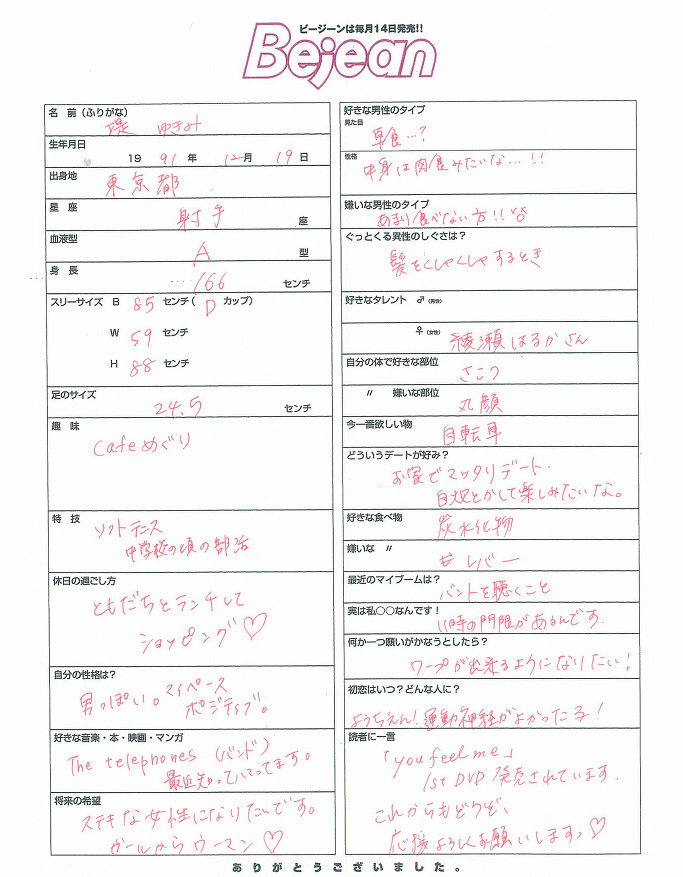 ビージーンは毎月14日発売!!
Bejean
名 前(ふりがな)
堤 ゆきみ
生年月日
19 91 年 12 月 19 日
出身地
東京都
星 座
射手 座
血液型
A 型
身 長
166 センチ
スリーサイズ B 85 センチ( D カップ)
W 59 センチ
H 88 センチ
足のサイズ
24.5 センチ
趣 味
Cafeめぐり
特 技
ソフトテニス
中学校の頃の部活
休日の過ごし方
ともだちとランチして
ショッピング♡
自分の性格は?
男っぽい。マイペース
ポジティブ。
好きな音楽・本・映画・マンガ
The telephones (バンド)
最近知ってハマってます。
将来の希望
ステキな女性になりたいです。
ガールからウーマン♡
好きな男性のタイプ
見た目
草食…?
性格
中身は肉食みたいな…!!
嫌いな男性のタイプ
あまり食べない方!!
ぐっとくる異性のしぐさは?
髪をくしゃくしゃするとき
好きなタレント ♂(男性)
♀(女性) 綾瀬はるかさん
自分の体で好きな部位
さこつ
〃 嫌いな部位
丸顔
今一番欲しい物
自転車
どういうデートが好み?
お家でマッタリデート.
自炊とかして楽しみたいな。
好きな食べ物
炭水化物
嫌いな 〃
レバー
最近のマイブームは?
バンドを聴くこと
実は私○○なんです!
11時の門限があるんです.
何か一つ願いがかなうとしたら?
ワープが出来るようになりたい!
初恋はいつ?どんな人に?
ようちえん!運動神経がよかった子!
読者に一言
「you feel me」
1st DVD 発売されています.
これからもどうぞ、
応援よろしくお願いします♡
ありがとうございました。